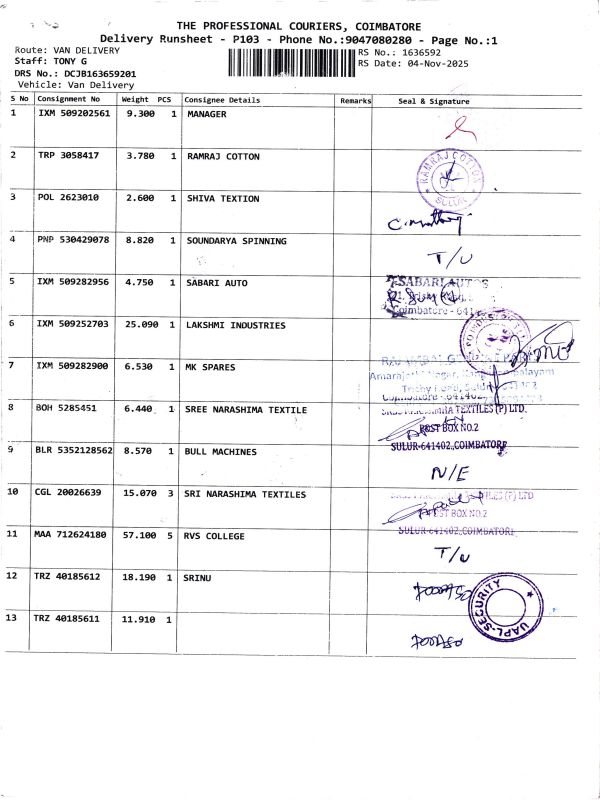 THE PROFESSIONAL COURIERS, COIMBATORE
Delivery Runsheet - P103 - Phone No.:9047080280 - Page No.:1
Route: VAN DELIVERY RS No.: 1636592
Staff: TONY G RS Date: 04-Nov-2025
DRS No.: DCJB163659201
Vehicle: Van Delivery
S No Consignment No Weight PCS Consignee Details Remarks Seal & Signature
1 IXM 509202561 9.300 1 MANAGER
2 TRP 3058417 3.780 1 RAMRAJ COTTON RAMRAJ COTTON SULUR
3 POL 2623010 2.600 1 SHIVA TEXTION
4 PNP 530429078 8.820 1 SOUNDARYA SPINNING T/U
5 IXM 509282956 4.750 1 SABARI AUTO SABARI AUTOS
Coimbatore - 641
6 IXM 509252703 25.090 1 LAKSHMI INDUSTRIES
7 IXM 509282900 6.530 1 MK SPARES
Trichy Road, Sulur
Coimbatore - 641402
8 BOH 5285451 6.440 1 SREE NARASHIMA TEXTILE TEXTILES (P) LTD.
POST BOX NO.2
SULUR-641402, COIMBATORE
9 BLR 5352128562 8.570 1 BULL MACHINES N/E
10 CGL 20026639 15.070 3 SRI NARASHIMA TEXTILES TILES (P) LTD
POST BOX NO.2
SULUR-641402, COIMBATORE
11 MAA 712624180 57.100 5 RVS COLLEGE T/U
12 TRZ 40185612 18.190 1 SRINU UAPL-SECURITY
13 TRZ 40185611 11.910 1